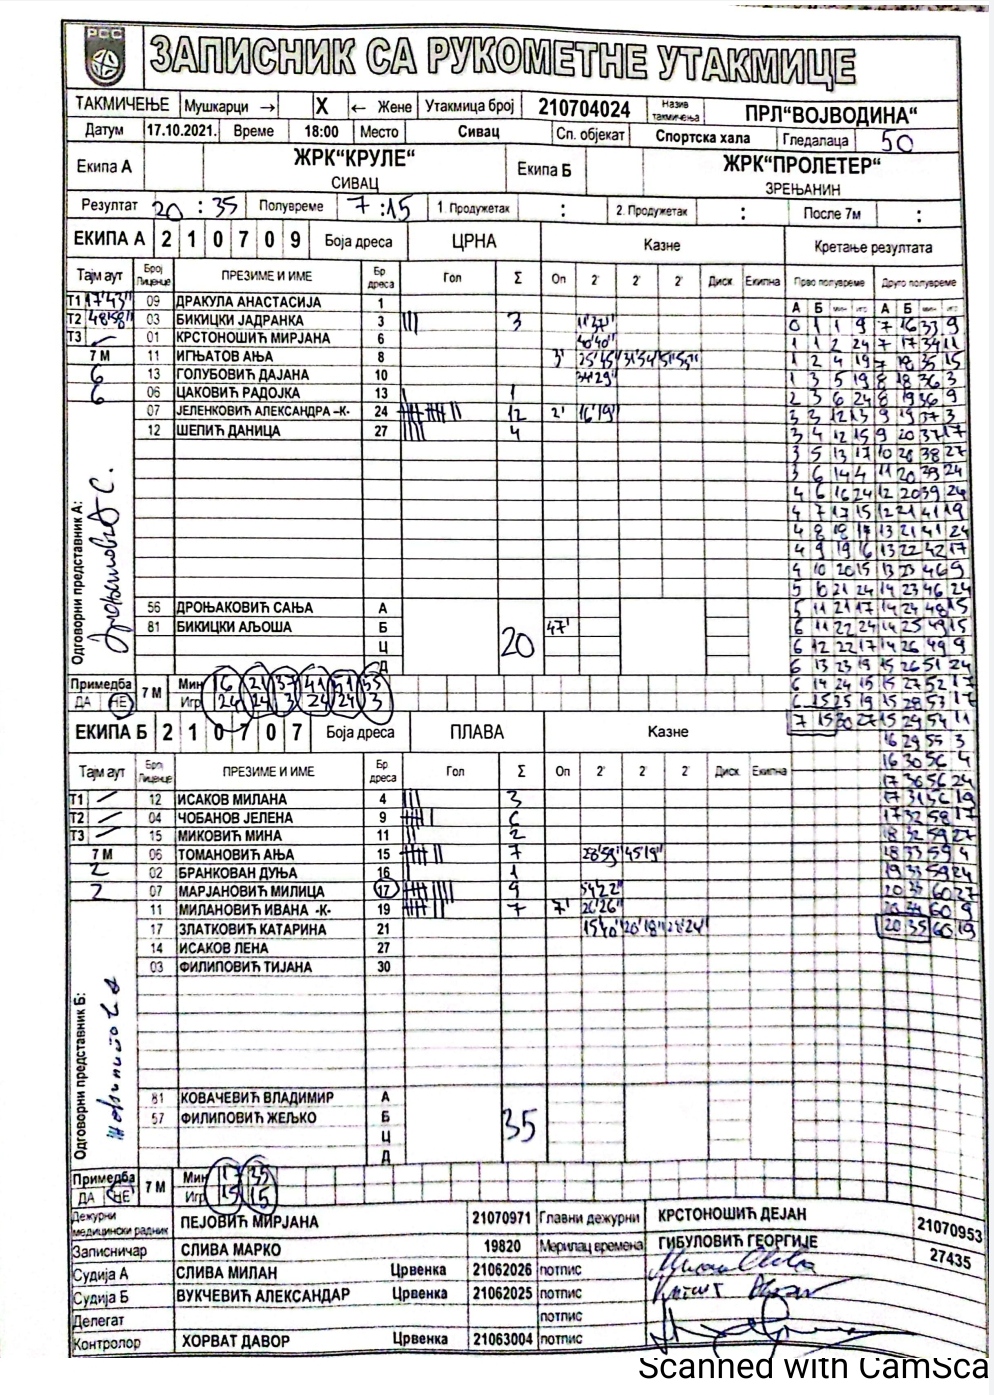 РСС
ЗАПИСНИК СА РУКОМЕТНЕ УТАКМИЦЕ
ТАКМИЧЕЊЕ Мушкарци → X ← Жене Утакмица број 210704024 Назив такмичења ПРЛ“ВОЈВОДИНА“
Датум 17.10.2021. Време 18:00 Место Сивац Сп. објекат Спортска хала Гледалаца 50
Екипа А ЖРК“КРУЛЕ“ Екипа Б ЖРК“ПРОЛЕТЕР“
СИВАЦ ЗРЕЊАНИН
Резултат 20 : 35 Полувреме 7 : 15 1. Продужетак : 2. Продужетак : После 7м :
ЕКИПА А 2 1 0 7 0 9 Боја дреса ЦРНА Казне Кретање резултата
Тајм аут Број Лиценце ПРЕЗИМЕ И ИМЕ Бр дреса Гол Σ Оп 2' 2' 2' Диск Екипна Прво полувреме Друго полувреме
А Б мин игр А Б мин игр
Т1 17'43" 09 ДРАКУЛА АНАСТАСИЈА 1
Т2 48'58" 03 БИКИЦКИ ЈАДРАНКА 3 3 11'37"
Т3 01 КРСТОНОШИЋ МИРЈАНА 6 40'40"
7 М 11 ИГЊАТОВ АЊА 8 3' 25'45" 31'54" 51'55"
6 13 ГОЛУБОВИЋ ДАЈАНА 10 34'29"
6 06 ЦАКОВИЋ РАДОЈКА 13 1
07 ЈЕЛЕНКОВИЋ АЛЕКСАНДРА -К- 24 12 2' 16'19"
12 ШЕПИЋ ДАНИЦА 27 4
0 1 1 9 7 16 33 9
1 1 2 24 7 17 34 11
1 2 4 19 7 18 35 15
1 3 5 19 8 18 36 3
2 3 6 24 8 19 36 9
3 3 12 13 9 19 37 3
3 4 12 15 9 20 37 17
3 5 13 17 10 20 38 27
3 6 14 4 11 20 39 24
4 6 16 24 12 20 39 24
4 7 17 15 12 21 41 19
4 8 18 17 13 21 41 24
4 9 19 16 13 22 42 17
4 10 20 15 13 23 46 9
5 10 21 24 14 23 46 24
5 11 21 17 14 24 48 15
6 11 22 24 14 25 49 15
6 12 22 17 14 26 49 9
6 13 23 19 15 26 51 24
6 14 24 15 15 27 52 17
6 15 25 19 15 28 53 17
7 15 30 27 15 29 54 11
16 29 55 3
16 30 56 4
17 30 56 24
17 31 56 19
17 32 58 17
18 32 59 27
18 33 59 4
19 33 59 24
20 33 60 27
20 34 60 9
20 35 60 19
Одговорни представник А:
56 ДРОЊАКОВИЋ САЊА А
81 БИКИЦКИ АЉОША Б 47'
Ц 20
Д
Примедба ДА НЕ 7 М Мин 16 21 37 41 51 55
Игр 24 24 3 24 24 3
ЕКИПА Б 2 1 0 7 0 7 Боја дреса ПЛАВА Казне
Тајм аут Број Лиценце ПРЕЗИМЕ И ИМЕ Бр дреса Гол Σ Оп 2' 2' 2' Диск Екипна
Т1 12 ИСАКОВ МИЛАНА 4 3
Т2 04 ЧОБАНОВ ЈЕЛЕНА 9 6
Т3 15 МИКОВИЋ МИНА 11 2
7 М 06 ТОМАНОВИЋ АЊА 15 7 28'59" 45'19"
2 02 БРАНКОВАН ДУЊА 16 1
2 07 МАРЈАНОВИЋ МИЛИЦА 17 9 54'22"
11 МИЛАНОВИЋ ИВАНА -К- 19 7 7' 26'26"
17 ЗЛАТКОВИЋ КАТАРИНА 21 15'40" 20'18"
14 ИСАКОВ ЛЕНА 27
03 ФИЛИПОВИЋ ТИЈАНА 30
Одговорни представник Б:
81 КОВАЧЕВИЋ ВЛАДИМИР А
57 ФИЛИПОВИЋ ЖЕЉКО Б 35
Ц
Д
Примедба ДА НЕ 7 М Мин 17 35
Игр 15 15
Дежурни медицински радник ПЕЈОВИЋ МИРЈАНА 21070971 Главни дежурни КРСТОНОШИЋ ДЕЈАН 21070953
Записничар СЛИВА МАРКО 19820 Мерилац времена ГИБУЛОВИЋ ГЕОРГИЈЕ 27435
Судија А СЛИВА МИЛАН Црвенка 21062026 потпис
Судија Б ВУКЧЕВИЋ АЛЕКСАНДАР Црвенка 21062025 потпис
Делегат потпис
Контролор ХОРВАТ ДАВОР Црвенка 21063004 потпис
Scanned with CamSca